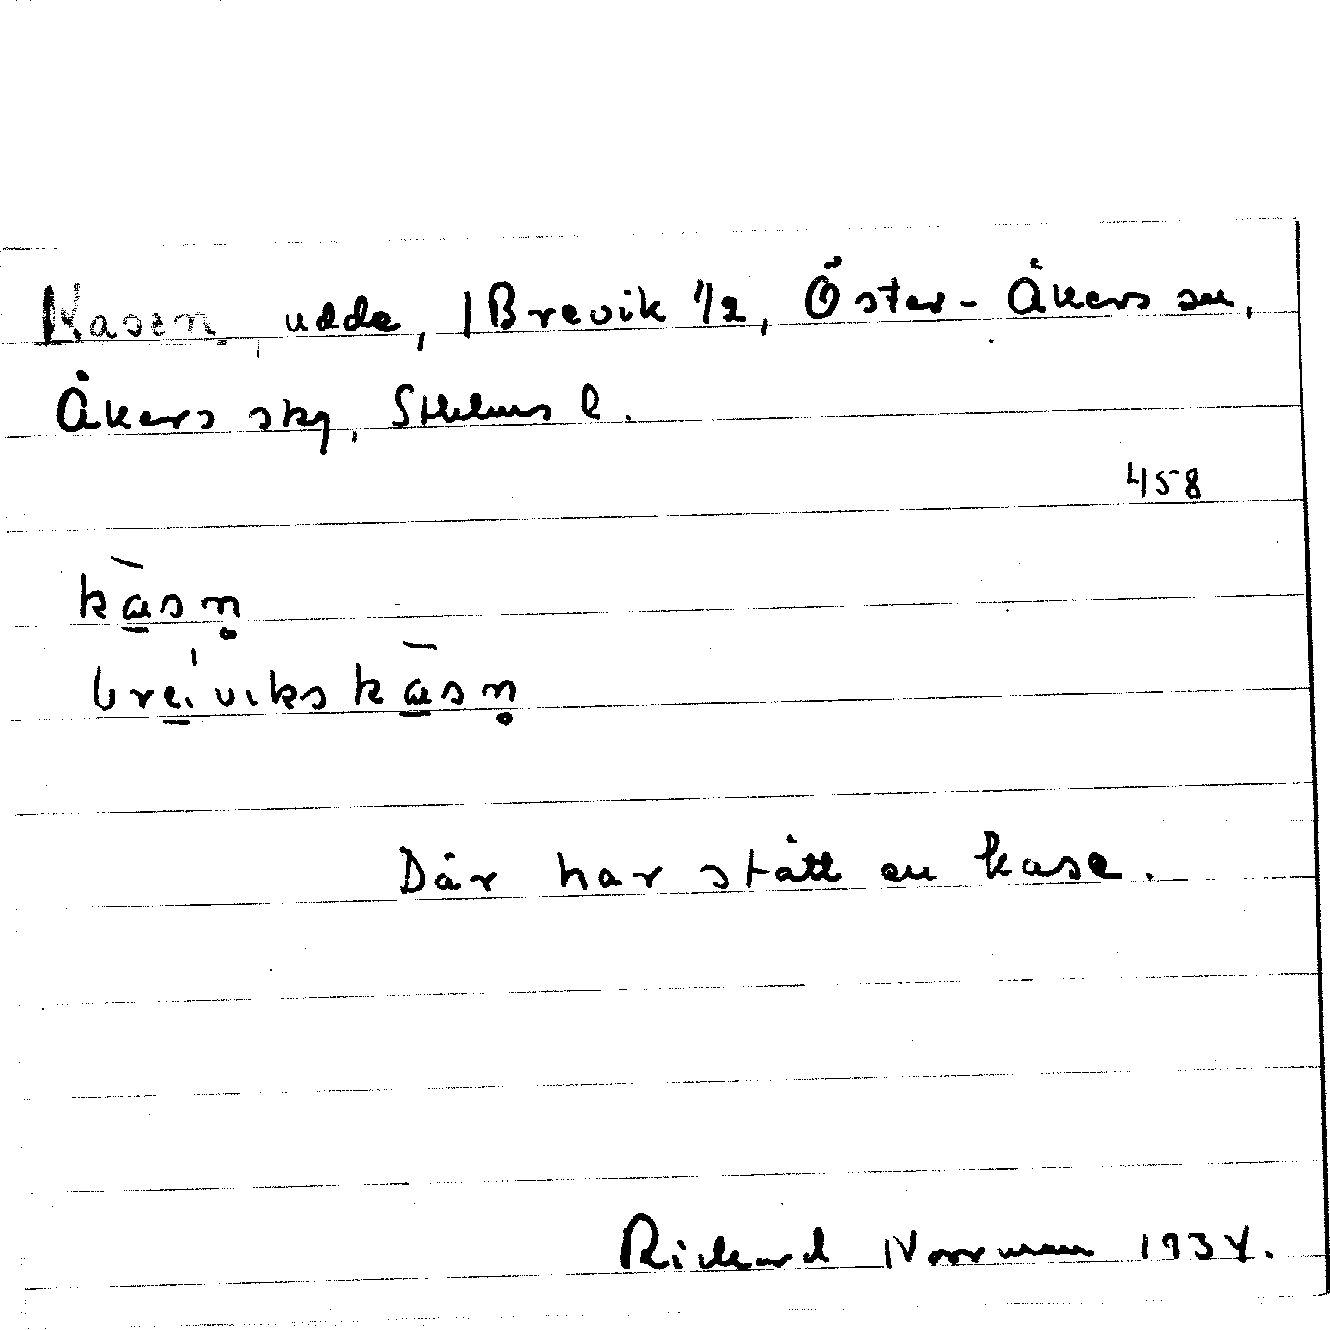 Kasen, udde, 1 Brevik 1/2, Öster-Åkers sn,
Åkers skg, Sthlms l.
458
kàsn̥
breíviks kàsn̥
Där har stått en kase.
Rickard Norrman 1934.